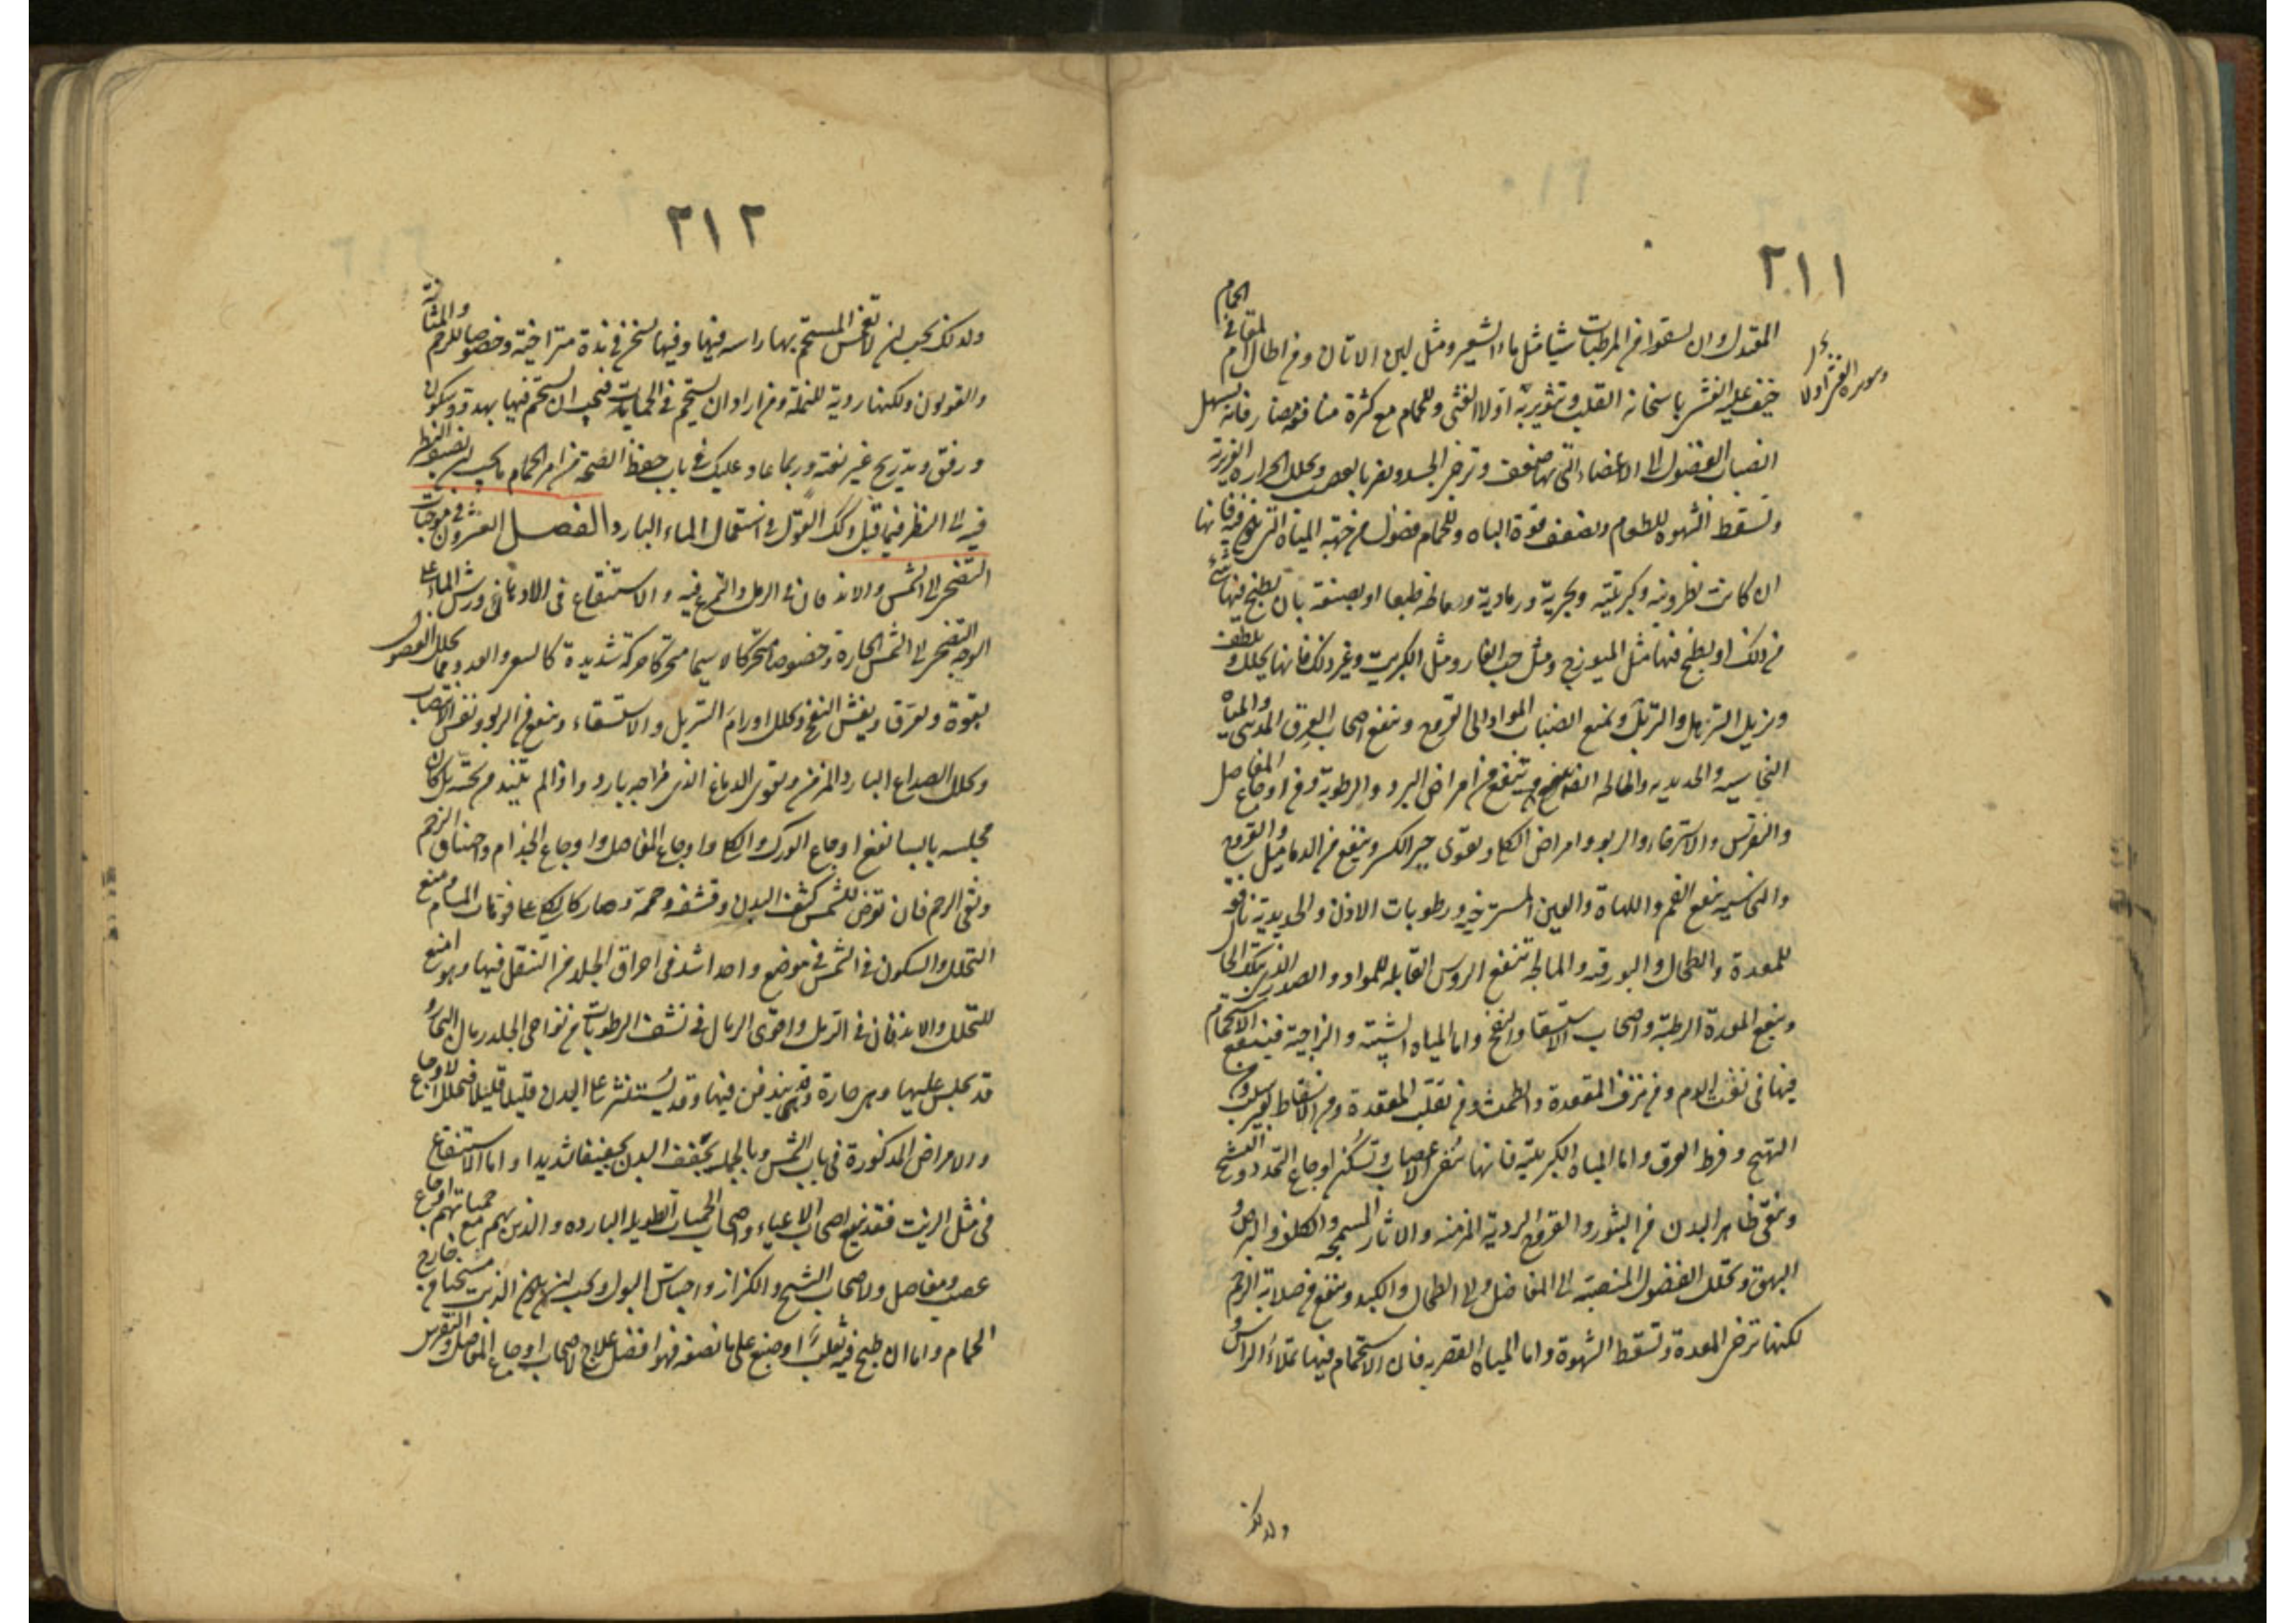 ٢١١
المعتدل وان يسقوا من المرطبات شيئا مثل ماء الشعير ومثل لبن الاتان ومن اطال المقام في الحمام
خيف عليه الغشى باسخانه القلب وتثويره اولا الغثى وللحمام مع كثرة منافعه مضار فانه يسهل
انصباب الفضول الى الاعضاء التى بها ضعف ويرخى الجسد ويضر بالعصب ويحلل الحرارة الغريزية
ويسقط الشهوة للطعام ويضعف قوة الباه وللحمام فضول من جهة المياه التى يكون فيه فانها
ان كانت نطرونية وكبريتية وبحرية ورمادية ومالحة طبعا او بصنعة بان يطبخ فيها شئ
من ذلك او يطبخ فيها مثل الميوزج ومثل حب الغار ومثل الكبريت وغير ذلك فانها يحلل ويلطف
ويزيل الترهل والتربل ويمنع انصباب المواد الى القروح وينفع اصحاب العرق المدينى والمياه
النحاسية والحديدية والمالحة ايضا ينفع من امراض البرد والرطوبة ومن اوجاع المفاصل
والنقرس والاسترخاء والربو وامراض الكلى ويقوى جبر الكسر وينفع من الدماميل والقروح
والنحاسية ينفع الفم واللهاة والعين المسترخية ورطوبات الاذن والحديدية نافعة
للمعدة والطحال والبورقية والمالحة تنفع الروس القابلة للمواد والصدر الذى بتلك الحال
وينفع المعدة الرطبة واصحاب الاستسقاء والنفخ واما المياه الشبية والزاجية فينفع الاستحمام
فيها فى نفث الدم ومن نزف المقعدة والطمث ومن تقلب المقعدة ومن الاسقاط بغير سبب ومن
التهيج وفرط العرق واما المياه الكبريتية فانها تنقى الاعصاب وتسكن اوجاع التمدد والتشنج
وينقى ظاهر البدن من البثور والقروح الردية المزمنة والاثار السمجة والكلف والبرص و
البهق ويحلل الفضول المنصبة الى المفاصل والى الطحال والكبد وينفع من صلابة الرحم
لكنها ترخى المعدة وتسقط الشهوة واما المياه القفرية فان الاستحمام فيها تملاء الراس و
ولذلك
٢١٢
ولذلك يجب ان لا يغمس المستحم بها راسه فيها وفيها تسخين فى مدة متراخية وخصوصا للرحم والمثانة
والقولون ولكنها ردية للنملة ومن اراد ان يستحم فى الحمامات فيجب ان يستحم فيها بهدو وسكون
ورفق وبتدريج غير بغتة وربما عاد عليك فى باب حفظ الصحة من امر الحمام ما يجب ان تضيف النظر
فيه الى النظر فيما قيل وكذلك القول فى استعمال الماء البارد الفصل العشرون فى موجبات
التضحى الى الشمس والاندفان فى الرمل والتمرغ فيه والاستنقاع فى الادهان ورش الماء على
الوجه التضحى الى الشمس الحارة وخصوصا متحركا لا سيما متحركا حركة شديدة كالسعى والعدو مما يحلل الفضول
بقوة ويعرق ويفش النفخ ويحلل اورام التربل والاستسقاء وينفع من الربو ونفس الانتصاب
ويحلل الصداع البارد المزمن ويقوى الدماغ الذى مزاجه بارد واذا لم يبتد من تحته بل كان
مجلسه يابسا نفع اوجاع الورك والكلى واوجاع المفاصل واوجاع الجذام واختناق الرحم
ونقى الرحم فان تعرض للشمس كثف البدن وقشفه وحممه وصار كالكى على فوهات المسام ومنع
التحلل والسكون فى الشمس فى موضع واحد اشد فى احراق الجلد من التنقل فيها وهو امنع
للتحلل والاندفان فى الرمل واقوى الرمال فى نشف الرطوبات من نواحى الجلد رمال البحار و
قد يجلس عليها وهى حارة وقد يندفن فيها وقد يستنثر على البدن قليلا قليلا فيحلل الاوجاع
والامراض المذكورة فى باب الشمس وبالجملة يجفف البدن تجفيفا شديدا واما الاستنقاع
فى مثل الزيت فقد ينفع اصحاب الاعياء واصحاب الحميات الطويلة الباردة والذين بهم مع حمياتهم اوجاع
عصب ومفاصل ولاصحاب التشنج والكزاز واحتباس البول ويجب ان يكون الزيت مسخنا من خارج
الحمام واما ان طبخ فيه ثعلب او ضبع على ما نصفه فهو افضل علاج لاصحاب اوجاع المفاصل والنقرس